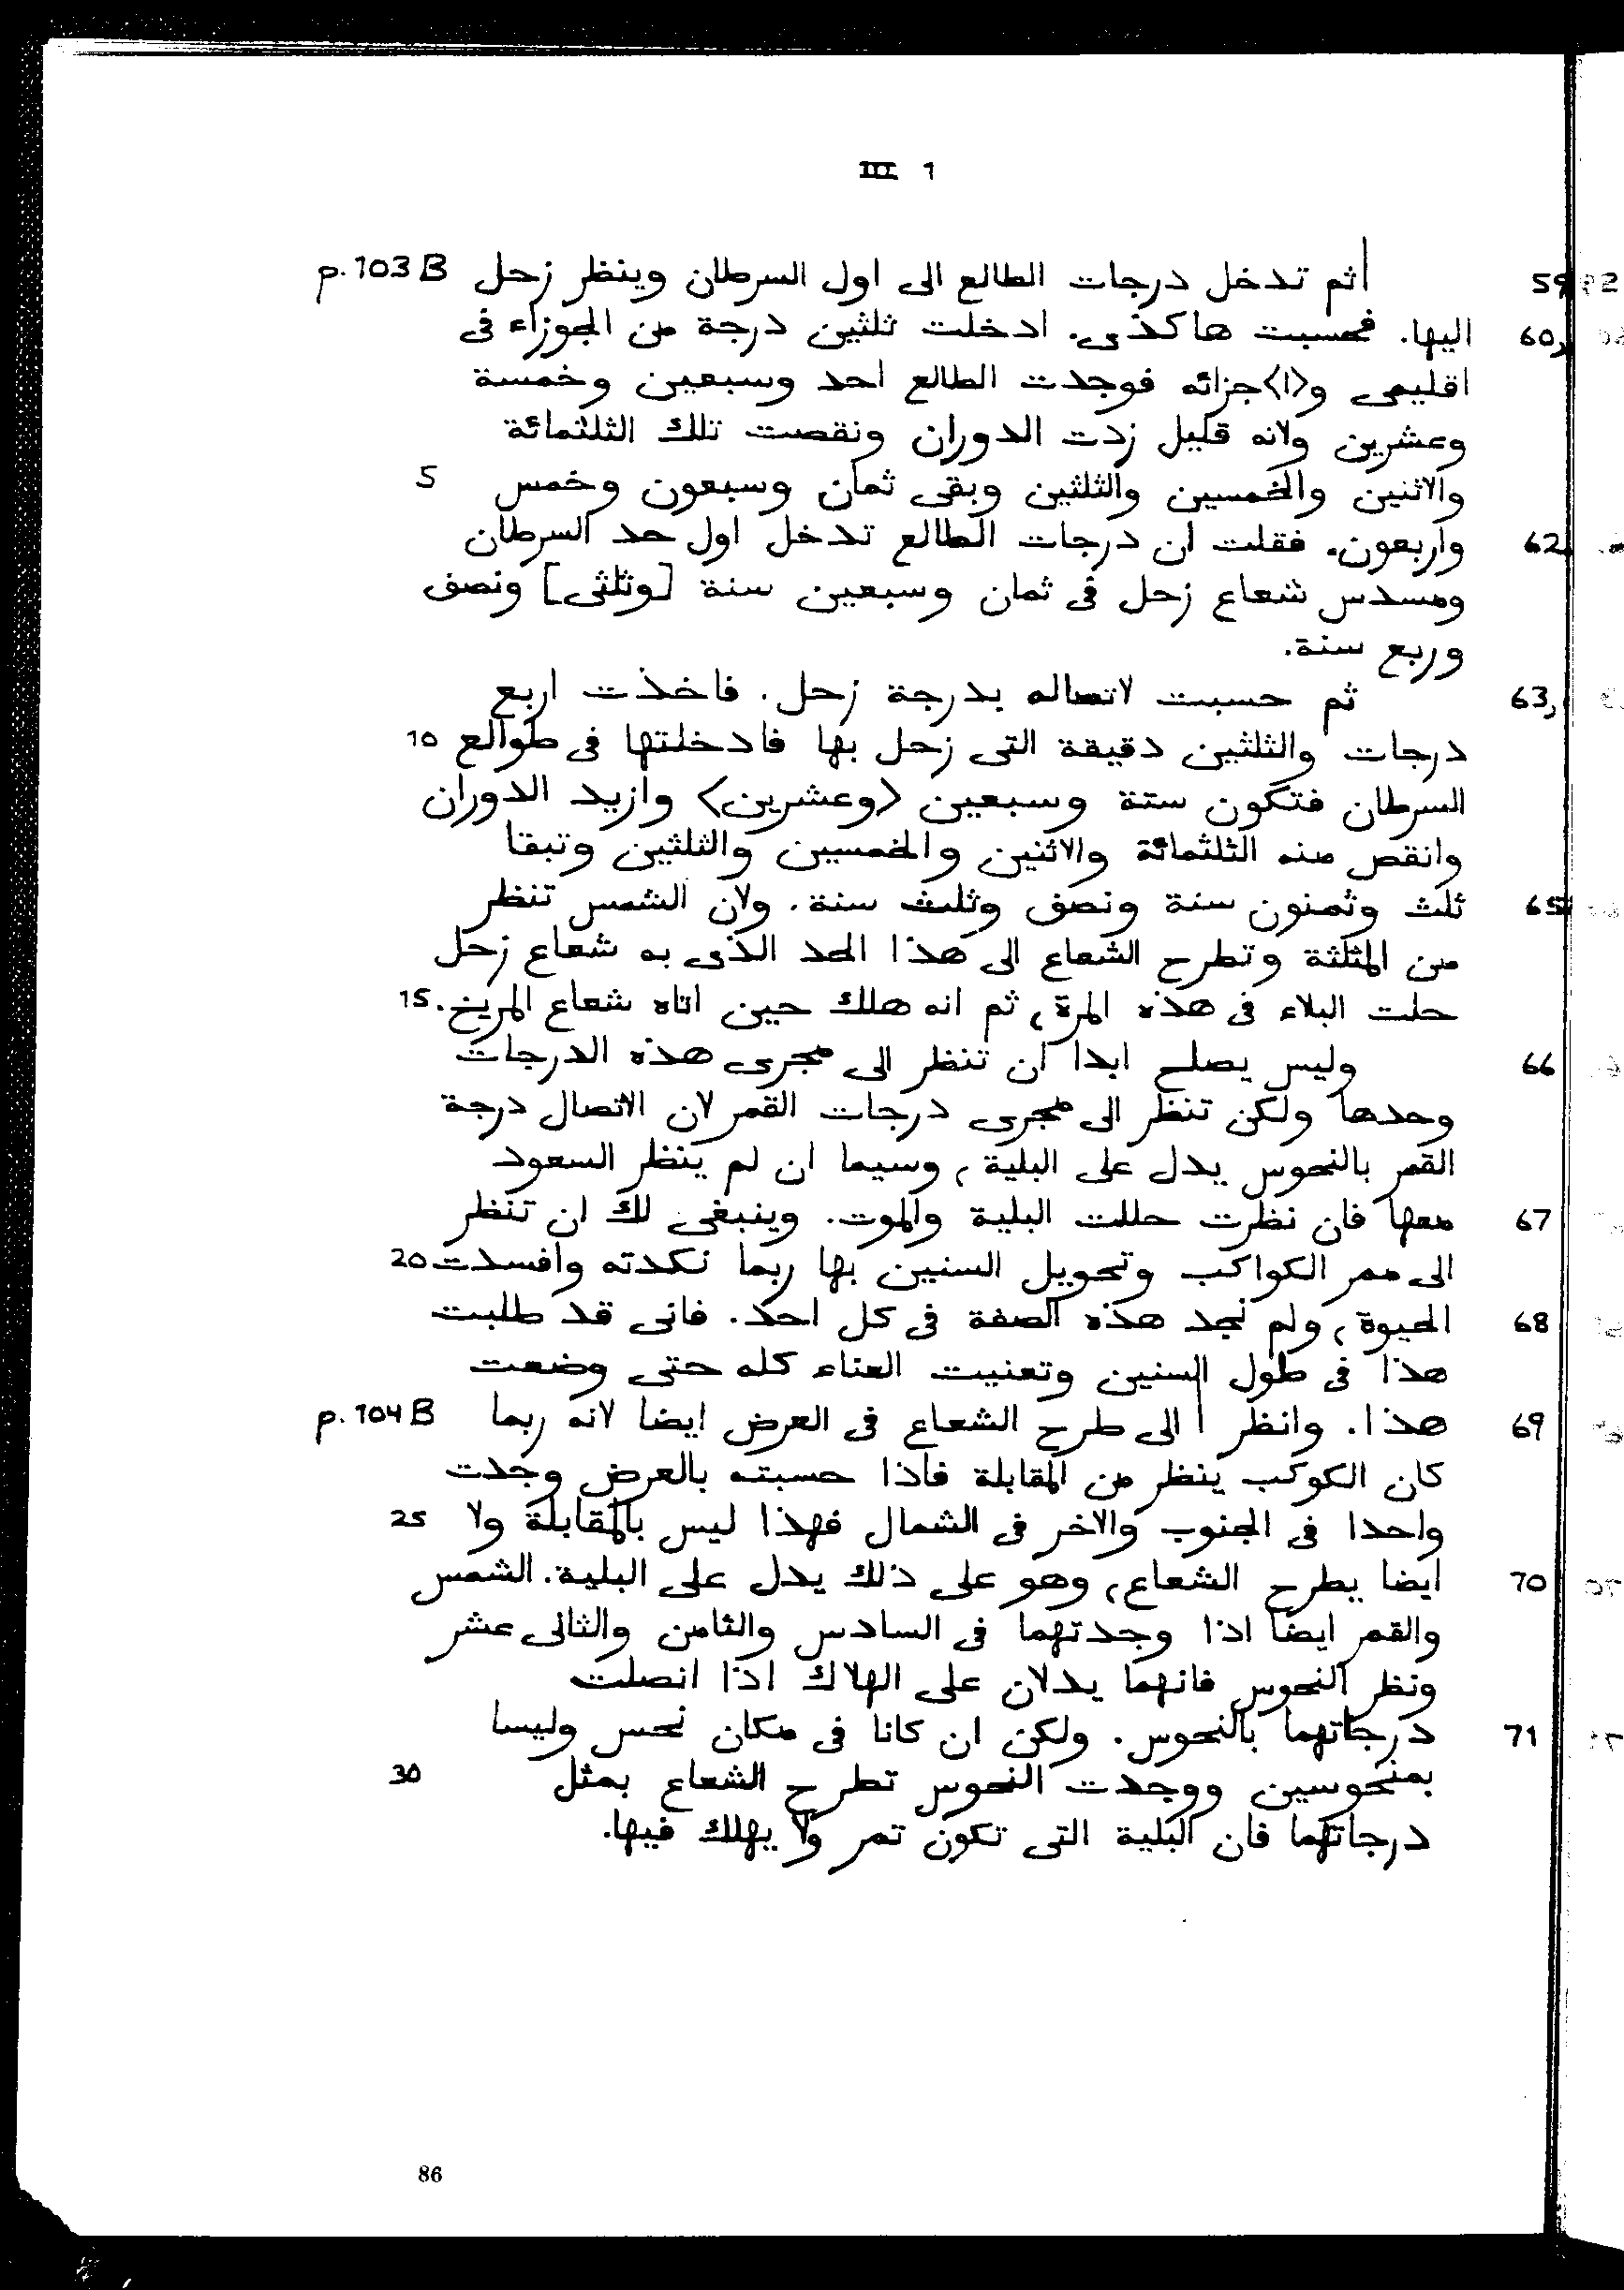 III 1
59 ثم تدخل درجات الطالع الى اول السرطان وينظر زحل p. 103 B
60 اليها. فحسبت هاكذى. ادخلت ثلثين درجة من الجوزاء فى
اقليمى و<ا>جزائه فوجدت الطالع احد وسبعين وخمسة
وعشرين ولانه قليل زدت الدوران ونقصت تلك الثلثمائة
والاثنين والخمسين والثلثين وبقى ثمان وسبعون وخمس 5
62 واربعون. فقلت ان درجات الطالع تدخل اول حد السرطان
ومسدس شعاع زحل فى ثمان وسبعين سنة [وثلثى] ونصف
وربع سنة.
63 ثم حسبت لاتصاله بدرجة زحل. فاخذت اربع
درجات والثلثين دقيقة التى زحل بها فادخلتها فى طوالع 10
السرطان فتكون ستة وسبعين <وعشرين> وازيد الدوران
وانقص منه الثلثمائة والاثنين والخمسين والثلثين وتبقا
65 ثلث وثمنون سنة ونصف وثلث سنة. ولان الشمس تنظر
من المثلثة وتطرح الشعاع الى هذا الحد الذى به شعاع زحل
حلت البلاء فى هذه المرة، ثم انه هلك حين اتاه شعاع المريخ. 15
66 وليس يصلح ابدا ان تنظر الى مجرى هذه الدرجات
وحدها ولكن تنظر الى مجرى درجات القمر لان الاتصال درجة
القمر بالنحوس يدل على البلية، وسيما ان لم ينظر السعود
67 معها فان نظرت حللت البلية والموت. وينبغى لك ان تنظر
الى ممر الكواكب وتحويل السنين بها ربما نكدته وافسدت 20
68 الحيوة، ولم نجد هذه الصفة فى كل احد. فانى قد طلبت
هذا فى طول السنين وتعنيت العناء كله حتى وضعت
69 هذا. وانظر | الى طرح الشعاع فى العرض ايضا لانه ربما p. 104 B
كان الكوكب ينظر من المقابلة فاذا حسبته بالعرض وجدت
واحدا فى الجنوب والاخر فى الشمال فهذا ليس بالمقابلة ولا 25
70 ايضا يطرح الشعاع، وهو على ذلك يدل على البلية. الشمس
والقمر ايضا اذا وجدتهما فى السادس والثامن والثانى عشر
ونظر النحوس فانهما يدلان على الهلاك اذا اتصلت
71 درجاتهما بالنحوس. ولكن ان كانا فى مكان نحس وليسا
بمنحوسين ووجدت النحوس تطرح الشعاع بمثل 30
درجاتهما فان البلية التى تكون تمر ولا يهلك فيها.
86